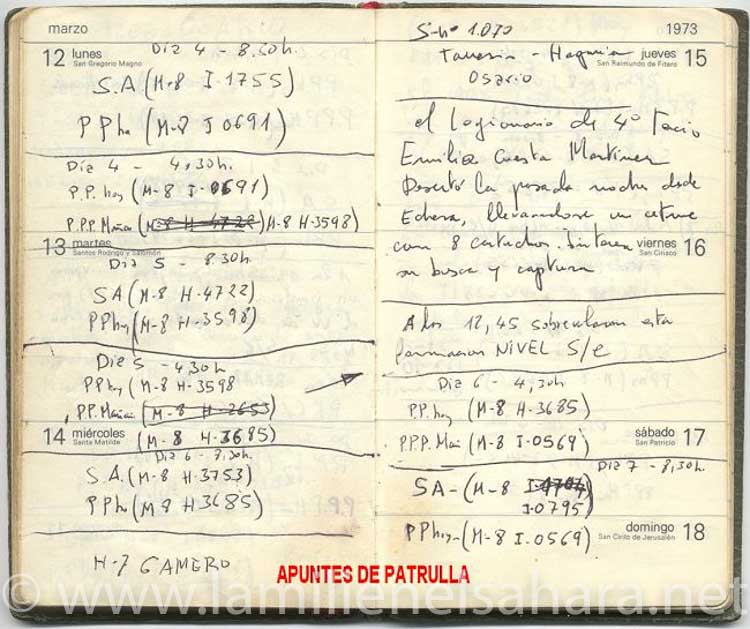 marzo
12 lunes
San Gregorio Magno
Día 4 - 8,30h.
S.A (M-8 I-1755)
P Phoy (M-8 I 0691)
Día 4 - 4,30h.
P.P. hoy (M-8 I-0691)
P.P.P. Mañan (M-8 H-4728) M-8 H-3598)
13 martes
Santos Rodrigo y Salomón
Día 5 - 8,30h
SA (M-8 H-4722)
PPhoy (M-8 H-3598)
Día 5 - 4,30h.
PPhoy (M-8 H-3598
P.P. Mañan (M-8 H-2653)
14 miércoles
Santa Matilde
(M-8 H-3685)
Día 6 - 8,30h.
S.A. (M-8 H-3753)
P Phoy (M-8 H-3685)
H-7 GAMERO
1973
S-nº 1.070
jueves 15
San Raimundo de Fitero
Osario
el legionario de 4º Tercio
Emilio Cuesta Martinez
Desertó la pasada noche desde
Edchera, llevandose un cetme
con 8 cartuchos. Interesa
viernes 16
San Ciriaco
su busca y captura
A las 12,45 sobrevolaron esta
formacion NIVEL S/e
Día 6 - 4,30h
P.P. hoy (M-8 H-3685)
P.P.P. Mañ (M-8 I-0569)
sábado 17
San Patricio
Día 7 - 8,30h.
SA - (M-8 I-4704)
I-0795)
P Phoy - (M-8 I-0569)
domingo 18
San Cirilo de Jerusalén
APUNTES DE PATRULLA
© www.lamilienelsahara.net